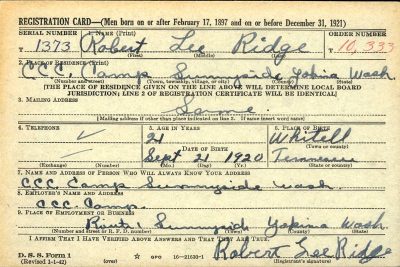 REGISTRATION CARD—(Men born on or after February 17, 1897 and on or before December 31, 1921)
SERIAL NUMBER 1. NAME (Print) ORDER NUMBER
T 1373 Robert Lee Ridge T 10,333
(First) (Middle) (Last)
2. PLACE OF RESIDENCE (Print)
C.C.C. Camp Sunnyside Yakima Wash.
(Number and street) (Town, township, village, or city) (County) (State)
[THE PLACE OF RESIDENCE GIVEN ON THE LINE ABOVE WILL DETERMINE LOCAL BOARD
JURISDICTION; LINE 2 OF REGISTRATION CERTIFICATE WILL BE IDENTICAL]
3. MAILING ADDRESS
Same
[Mailing address if other than place indicated on line 2. If same insert word same]
4. TELEPHONE 5. AGE IN YEARS 6. PLACE OF BIRTH
21 Whitell
DATE OF BIRTH (Town or county)
Sept. 21 1920 Tennessee
(Exchange) (Number) (Mo.) (Day) (Yr.) (State or country)
7. NAME AND ADDRESS OF PERSON WHO WILL ALWAYS KNOW YOUR ADDRESS
CCC Camp Sunnyside Wash.
8. EMPLOYER'S NAME AND ADDRESS
CCC Camp.
9. PLACE OF EMPLOYMENT OR BUSINESS
Route 1 Sunnyside Yakima Wash
(Number and street or R. F. D. number) (Town) (County) (State)
I AFFIRM THAT I HAVE VERIFIED ABOVE ANSWERS AND THAT THEY ARE TRUE.
D. S. S. Form 1 GPO 16—21630-1 Robert Lee Ridge
(Revised 1-1-42) (over) (Registrant's signature)